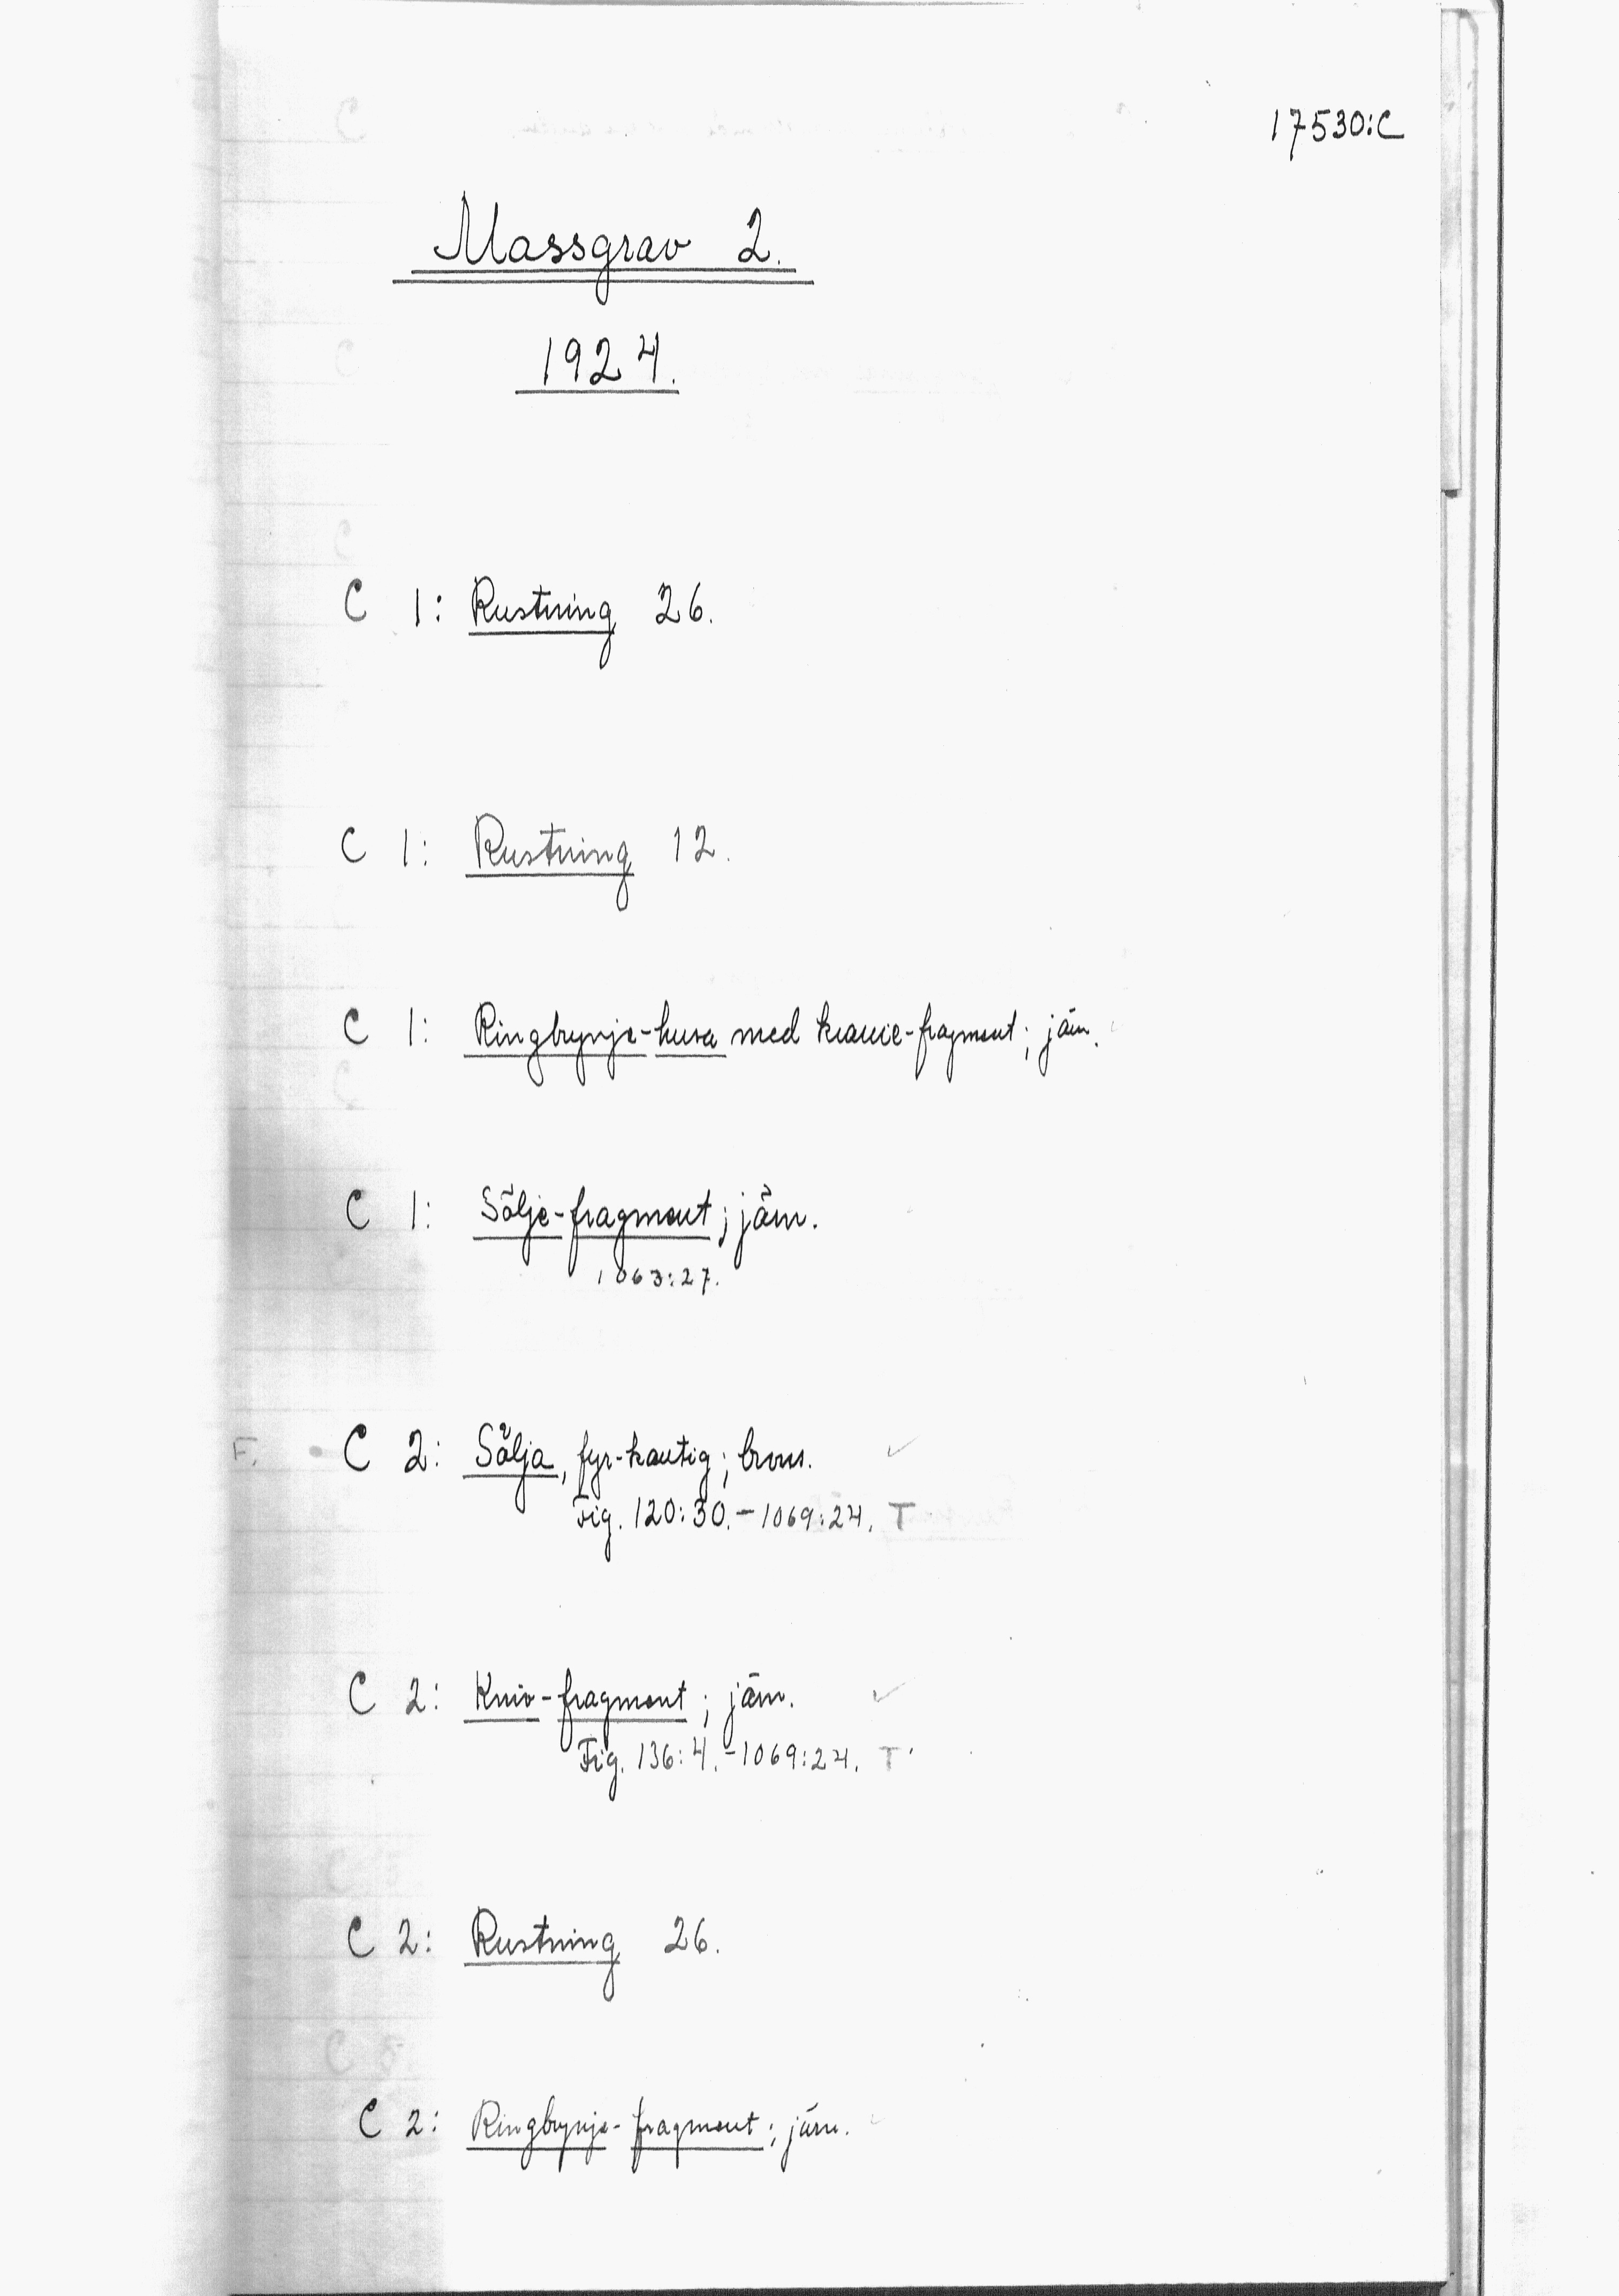 17530:C
Massgrav 2.
1924.
C 1: Rustning 26.
C 1: Rustning 12.
C 1: Ringbrynje-huva med kranie-fragment; järn.
C 1: Sölje-fragment; järn.
1063:27.
F. C 2: Sölja, fyr-kantig; brons. ✓
Fig. 120:30.-1069:24. T
C 2: Kniv-fragment; järn. ✓
Fig. 136:4.-1069:24. T
C 2: Rustning 26.
C 2: Ringbrynje-fragment; järn.